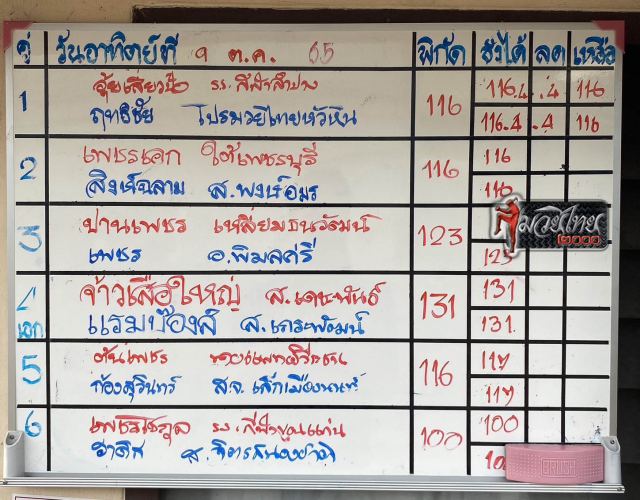 คู่ วันอาทิตย์ที่ ๑ ต.ค. 65 พิกัด ชั่งได้ ลด เหลือ
1 อุ้ยเสี่ยวป้อ ร.ร.กีฬาลำปาง 116 116.4 .4 116
ฤทธิชัย โปรมวยไทยหัวหิน 116.4 .4 116
2 เพชรเอก ใต้เพชรบุรี 116 116
สิงห์ฉลาม ส.พงษ์อมร 116
3 ปานเพชร เหลี่ยมธนวัฒน์ 123
เพชร อ.พิมลศรี 123
มวยไทย
๒๐๐๐
4 จ้าวเสือใหญ่ ส.เดชะพันธ์ 131 131
เอก แรมบ๊องส์ ส.เถระพัฒน์ 131
5 ต้นเพชร 116 117
ก้องสุรินทร์ ส.จ.เล็กเมืองนนท์ 117
6 เพชรชกุล ร.ร.กีฬาขอนแก่น 100 100
อาทิศ ส.จิตรสนองชาติ